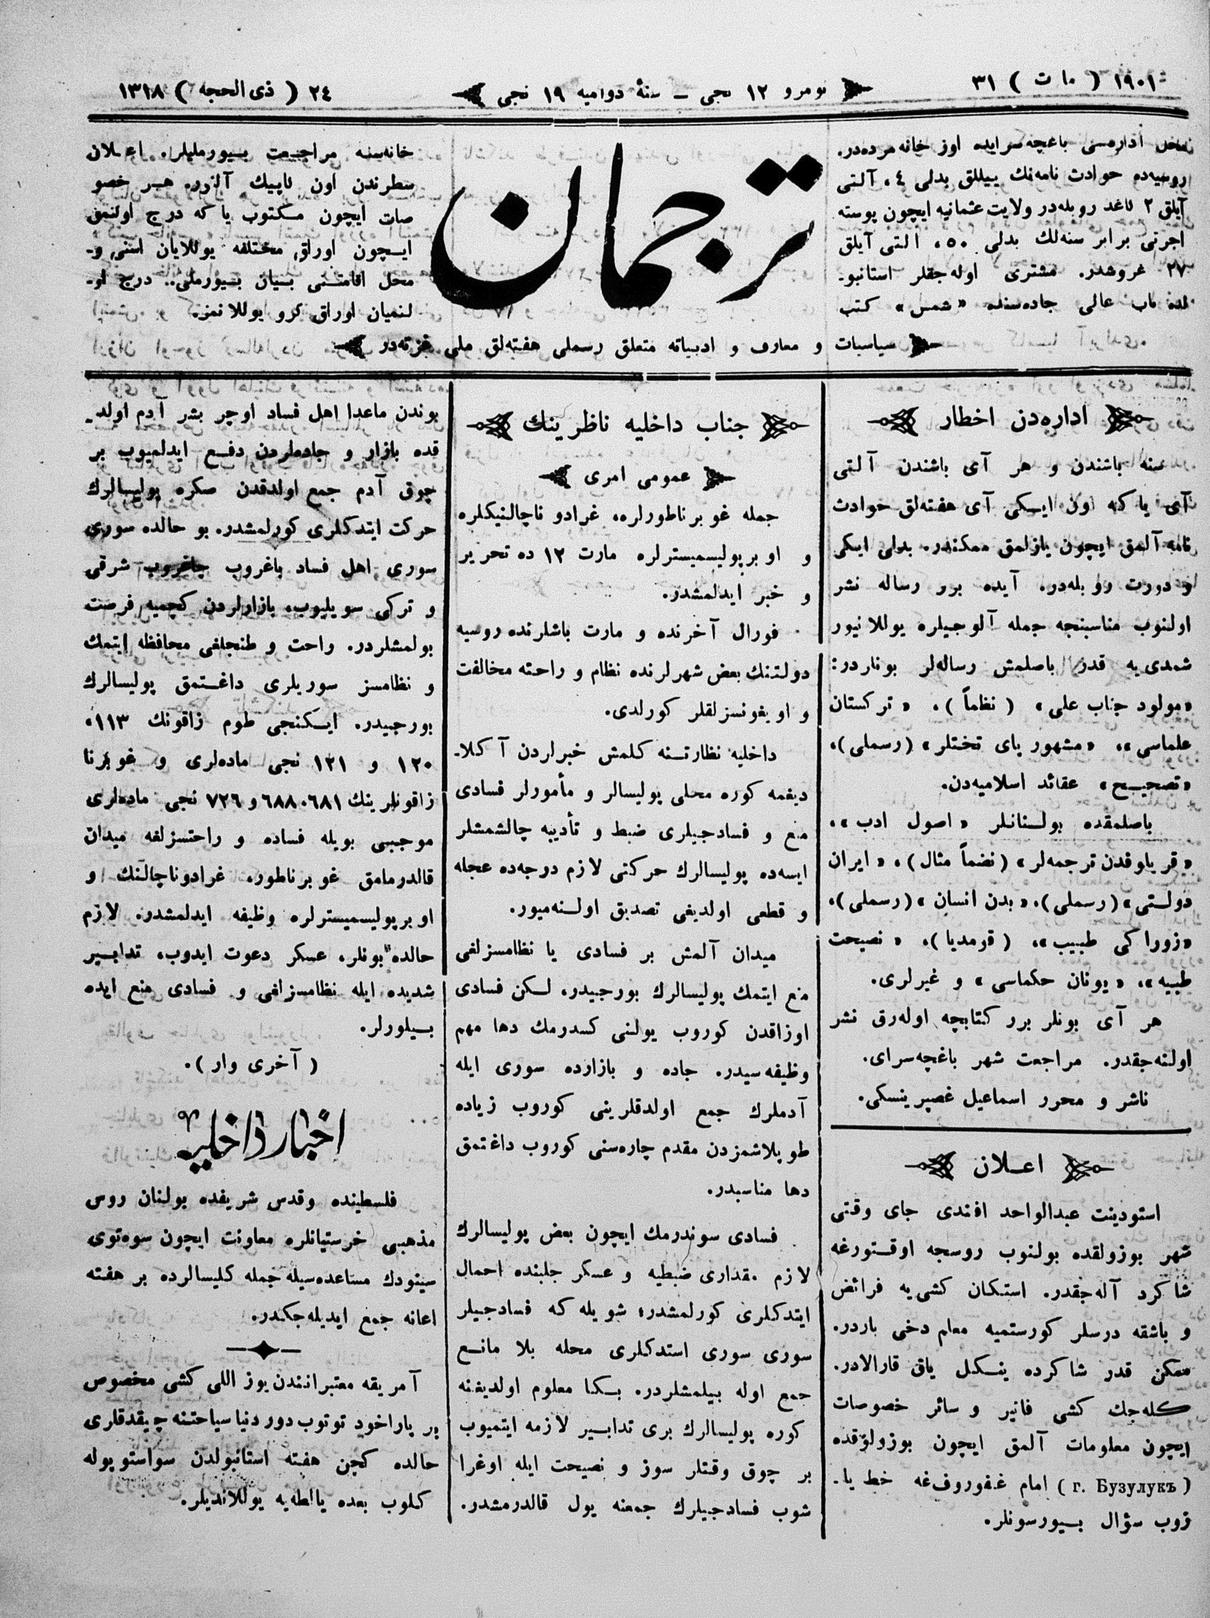 ١٩٠١ ( ١٠ ت ) ٣١
نومرو ١٢ نجى ــ سنۀ دواميه ١٩ نجى
٢٤ ( ذى الحجه ) ١٣١٨
اداره‌سى باغچه‌سرايده اوز خانه‌مزده‌در.
روسيه‌ده حوادث نامه‌نك ييللق بدلى ٤، آلتى
آيلق ٢ روبله‌در ولايت عثمانيه ايچون پوسته
اجرتى برابر سنه‌لك بدلى ٥٠، التى آيلق
٢٧ غروشدر. مشترى اوله‌جقلر استانبو-
لده باب عالى جاده‌سنده «شمس» كتب
ترجمان
خانه‌سنه مراجعت بيورمليلر. اعلان
سطرندن اون كاپيك آلنور. هر خصو
صات ايچون مكتوب يا كه درج اولنمق
ايچون اوراق مختلفه يوللايان اسنى و-
محل اقامتنى بيان بيورملى.. درج او-
لنميان اوراق كرو يوللانمز.
سياسيات و معارف و ادبياته متعلق رسملى هفته‌لق ملى غزته‌در
اداره‌دن اخطار
سنه باشندن و هر آى باشندن آلتى
آى يا كه اون ايكى آى هفته‌لق حوادث
نامه آلمق ايچون يازلمق ممكندر. بدلى ايكى
و دورت روبله‌در. آيده برر رساله نشر
اولنوب مناسبنجه جمله آلوجيلره يوللانيور
شمدى‌يه قدر باصلمش رساله‌لر بونلردر:
«مولود جناب على» (نظماً)، «تركستان
علماسى»، «مشهور پاى تختلر» (رسملى)،
«تصحيح» عقائد اسلاميه‌دن.
باصلمقده بولنانلر «اصول ادب»،
«قريلوفدن ترجمه‌لر» (نضماً مثال)، «ايران
دولتى» (رسملى)، «بدن انسان» (رسملى)،
«زوراكى طبيب»، (قومديا)، «نصيحت
طبيه»، «يونان حكماسى» و غيرلرى.
هر آى بونلر برر كتابچه اوله‌رق نشر
اولنه‌جقدر. مراجعت شهر باغچه‌سراى.
ناشر و محرر اسماعيل غصپرينسكى.
اعلان
استودينت عبدالواحد افندى جاى وقتى
شهر بوزولقده بولنوب روسجه اوقتورغه
شاكرد آله‌جقدر. استكان كشى‌يه فرائض
و باشقه درسلر كورستميه معام دخى باردر.
ممكن قدر شاكرده ينكل ياق قارالادر.
كله‌جك كشى فاتير و سائر خصوصات
ايچون معلومات آلمق ايچون بوزولوقده
(г. Бузулукъ) امام غفوروف‌غه خط يا.
زوب سؤال بيورسونلر.
جناب داخليه ناظرينك
عمومى امرى
جمله غوبرناطورلره، غرادوناچالنيكلره
و اوبرپوليسميسترلره مارت ١٢ ده تحرير
و خبر ايدلمشدر.
فورال آخرنده و مارت باشلرنده روسيه
دولتنك بعض شهرلرنده نظام و راحته مخالفت
و اويغونسزلقلر كورلدى.
داخليه نظارتنه كلمش خبرلردن آكلا-
ديغمه كوره محلى پوليسالر و مأمورلر فسادى
منع و فسادجيلرى ضبط و تأديبه چالشمشلر
ايسه‌ده پوليسالرك حركتى لازم دوجه‌ده عجله
و قطعى اولديغى تصديق اولنه‌ميور.
ميدان آلمش بر فسادى يا نظامسزلغى
منع ايتمك پوليسالرك بورجيدر. لكن فسادى
اوزاقدن كوروب يولنى كسدرمك دها مهم
وظيفه‌سيدر. جاده و بازارده سورى ايله
آدملرك جمع اولدقلرينى كوروب زياده
طوپلاشمزدن مقدم چاره‌سنى كوروب داغتمق
دها مناسبدر.
فسادى سوندرمك ايچون بعض پوليسالرك
لازم مقدارى ضبطيه و عسكر جلبنده احمال
ايتدكلرى كورلمشدر؛ شويله كه فسادجيلر
سورى سورى استدكلرى محله بلا مانع
جمع اوله بيلمشلردر. بكا معلوم اولديغنه
كوره پوليسالرك برى تدابير لازمه ايتميوب
بر چوق وقتلر سوز و نصيحت ايله اوغرا
شوب فسادجيلرك جمعنه يول قالدرمشدر.
بوندن ماعدا اهل فساد اوچر بشر آدم اولد-
قده بازار و جاده‌لردن دفع ايدلميوب بر
چوق آدم جمع اولدقدن صكره پوليسالرك
حركت ايتدكلرى كورلمشدر. بو حالده سورى
سورى اهل فساد باغروب چاغروب شرقى
و تركى سويليوب، بازارلردن كچميه فرصت
بولمشلردر. راحت و طنجلغى محافظه ايتمك
و نظامسز سوريلرى داغتمق پوليسالرك
بورجيدر. ايكنجى طوم زاقونك ١١٣،
١٢٠ و ١٢١ نجى ماده‌لرى و غوبرنا
زاقونلرينك ٦٨١،٦٨٨ و ٧٢٦ نجى ماده‌لرى
موجبى بويله فساده و راحتسزلغه ميدان
قالدرمامق غوبرناطور، غرادوناچالنك و
اوبرپوليسميسترلره وظيفه ايدلمشدر. لازم
حالده بونلر، عسكر دعوت ايدوب، تدابير
شديده ايله نظامسزلغى و فسادى منع ايده
بيلورلر.
(آخرى وار).
اخبار داخليه
فلسطينده وقدس شريفده بولنان روس
مذهبى خرستيانلره معاونت ايچون سوه‌توى
سينودك مساعده‌سيله جمله كليسالرده بر هفته
اعانه جمع ايديله‌جكدر.
آمريقه معتبرانندن يوز اللى كشى مخصوص
بر پاراخود توتوب دور دنيا سياحتنه چيقدقلرى
حالده كچن هفته استانبولدن سواستوپوله
كلوب بعده يالطه‌يه يوللانديلر.